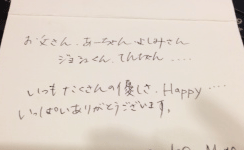 お父さん、あーちゃん、よしみさん
ジョンくん、てんちゃん ‥‥
いつもたくさんの優しさ、Happy ‥‥
いっぱいありがとうございます。